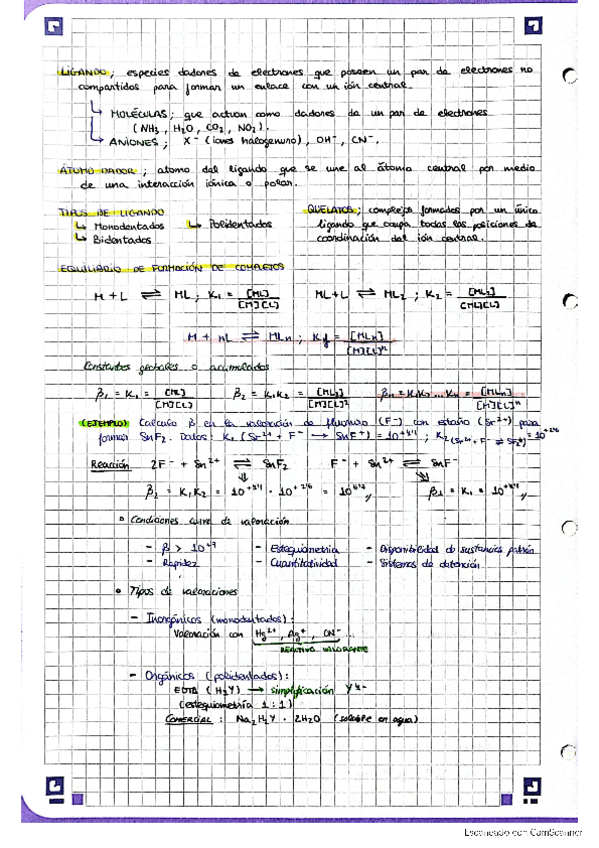 LIGANDO ; especies dadores de electrones que poseen un par de electrones no
compartidos para formar un enlace con un ión central.
↳ MOLÉCULAS ; que actúan como dadores de un par de electrones
(NH3 , H2O , CO2 , NO2).
↳ ANIONES ; X⁻ (iones halogenuro) , OH⁻ , CN⁻.
ÁTOMO DADOR ; átomo del ligando que se une al átomo central por medio
de una interacción iónica o polar.
TIPOS DE LIGANDO
↳ Monodentados ↳ Polidentados
↳ Bidentados
QUELATOS ; complejos formados por un único
ligando que ocupa todas las posiciones de
coordinación del ión central.
EQUILIBRIO DE FORMACIÓN DE COMPLEJOS
M + L ⇌ ML ; K₁ = [ML] / [M][L]    ML + L ⇌ ML₂ ; K₂ = [ML₂] / [ML][L]
M + nL ⇌ MLn ; Kf = [MLn] / [M][L]ⁿ
Constantes globales o acumulados
β₁ = K₁ = [ML] / [M][L]    β₂ = K₁K₂ = [ML₂] / [M][L]²    βn = K₁K₂ ... Kn = [MLn] / [M][L]ⁿ
(EJEMPLO) Calcula β en la valoración de fluoruro (F⁻) con estaño (Sn²⁺) para
formar SnF₂. Datos: K₁
Reacción 2F⁻ + Sn²⁺ ⇌ SnF₂    F⁻ + Sn²⁺ ⇌ SnF⁻
β₂ = K₁K₂ =    β₁ = K₁ =
Condiciones curva de valoración
- β > 10⁺⁷ - Estequiometría - Disponibilidad de sustancias patrón
- Rapidez - Cuantitatividad - Sistemas de detención
• Tipos de valoraciones
- Inorgánicos (monodentados) :
Valoración con Hg²⁺, Ag⁺, CN⁻ ...
REACTIVO VALORANTE
- Orgánicos (polidentados) :
EDTA (H₄Y) → simplificación Y⁴⁻
(estequiometría 1:1)
COMERCIAL : Na₂H₂Y · 2H₂O (soluble en agua)
Escaneado con CamScanner